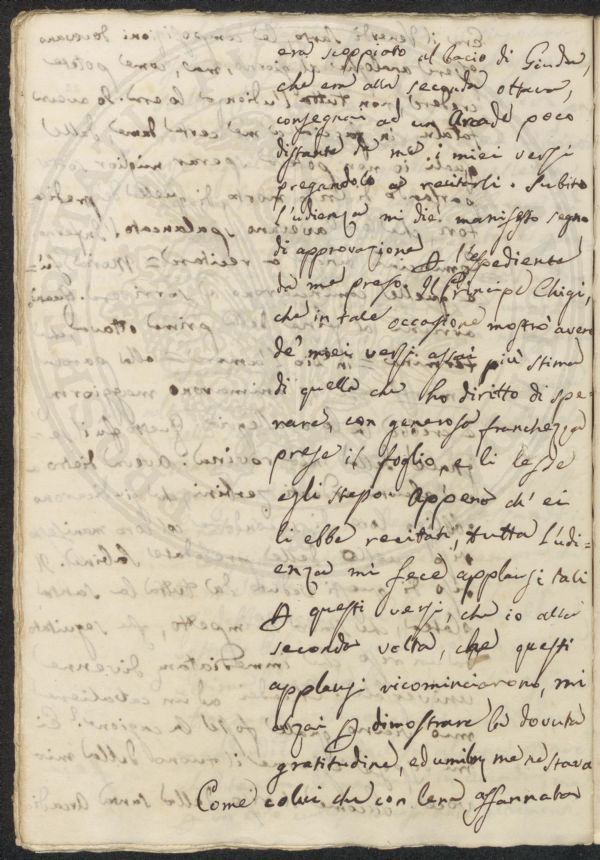 era scoppiato al bacio di Giuda,
che era alla seconda ottava,
consegnai ad un Arcade poco
distante da me i miei versi
pregandolo a recitarli. Subito
l'udienza mi diè manifesto segno
di approvazione l'espediente
da me preso. Il Principe Chigi,
che in tale occasione mostrò avere
de' miei versi assai più stima
di quella che ho diritto di spe-
rare, con generosa franchezza
prese il foglio, e li lesse
egli stesso. Appena ch' ei
li ebbe recitati, tutta l'udi-
enza mi fece applausi tali
questi versi, che io alla
seconda volta, che questi
applausi ricominciarono, mi
alzai dimostrare la dovuta
gratitudine, ed me ne stava
Come colui che con lena affannata